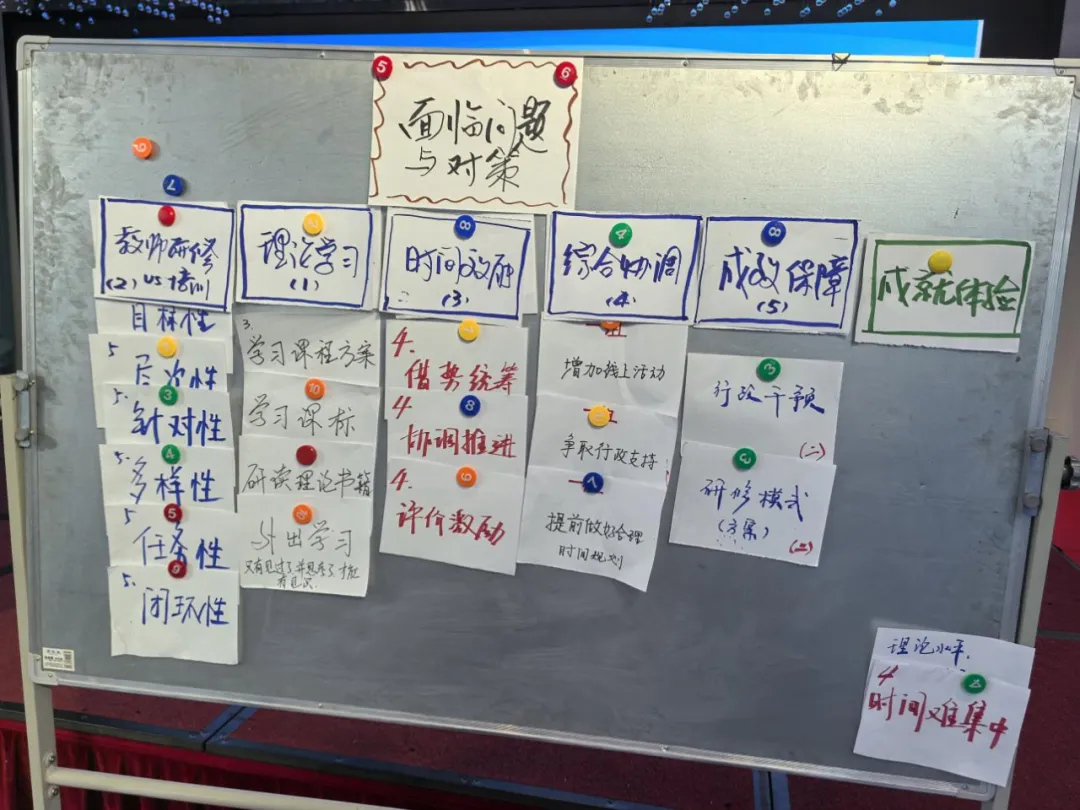 面临问题
与对策
教师研修
(2) VS 培训
目标性
5
层次性
5.
针对性
5.
多样性
5
任务性
5.
闭环性
理论学习
(1)
3.
学习课程方案
学习课标
研读理论书籍
外出学习
又有见过了并思考了, 才能
有见识
时间效应
(3)
4.
借势统筹
4
协调推进
4.
评价激励
综合协调
(4)
增加线上活动
争取行政支持
提前做好合理
时间规划
成效保障
(5)
行政干预
(一)
研修模式
(方案)
(二)
成就体验
理论水平.
4
时间难集中